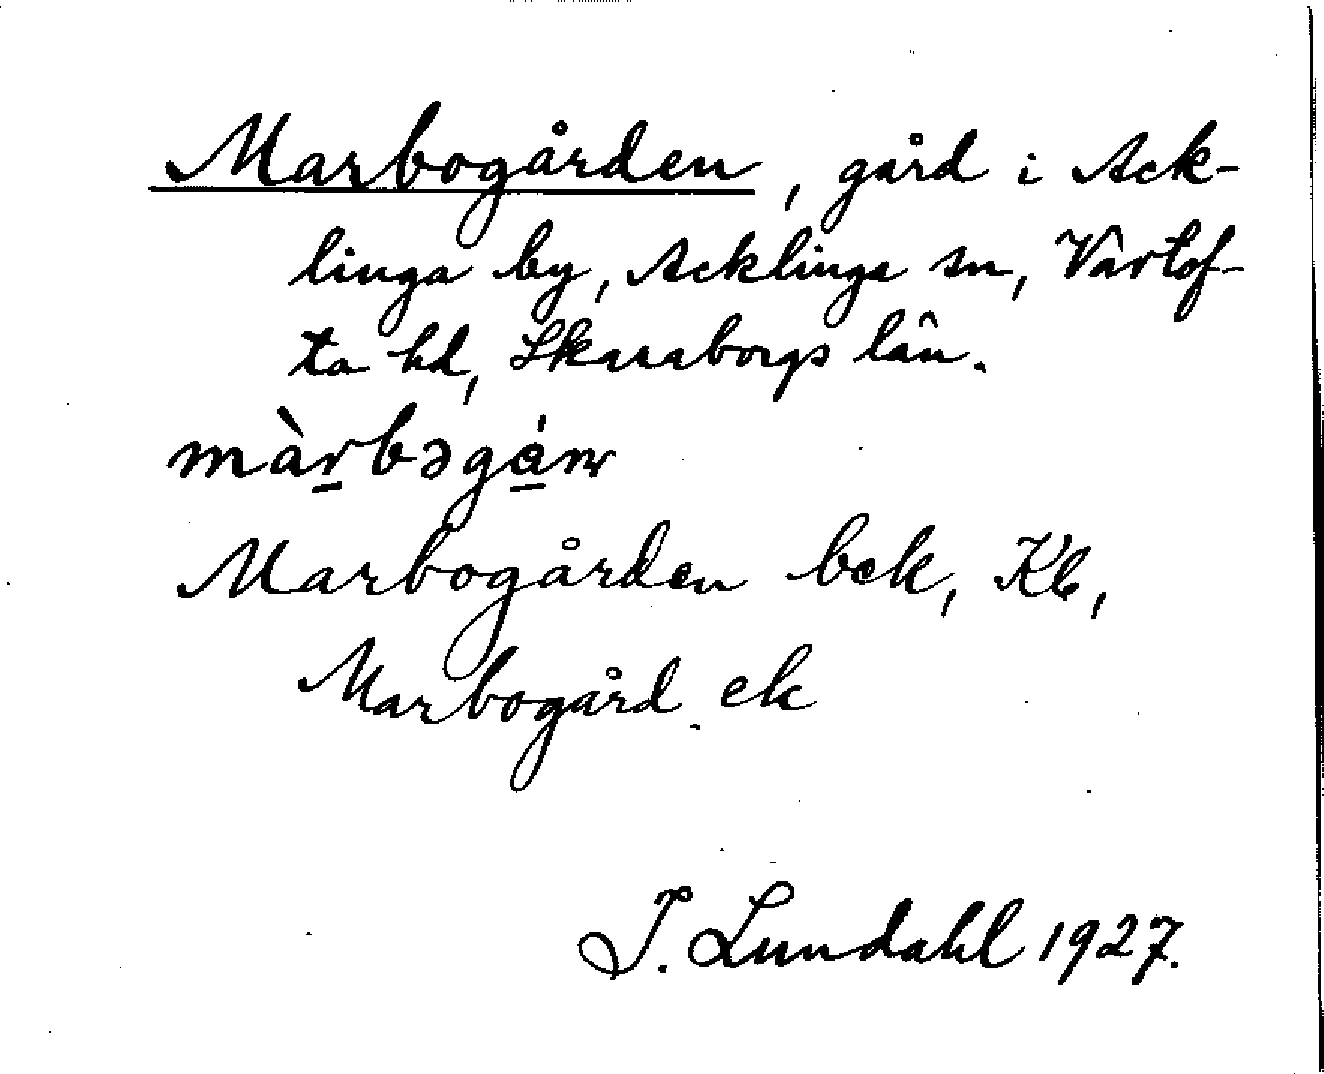 Marbogården, gård i Ack-
linga by, Acklinga sn, Vartof-
ta hd, Skaraborgs län.
màr̠bəgá̠ṇ
Marbogården bek, Kb,
Marbogård ek
I. Lundahl 1927.